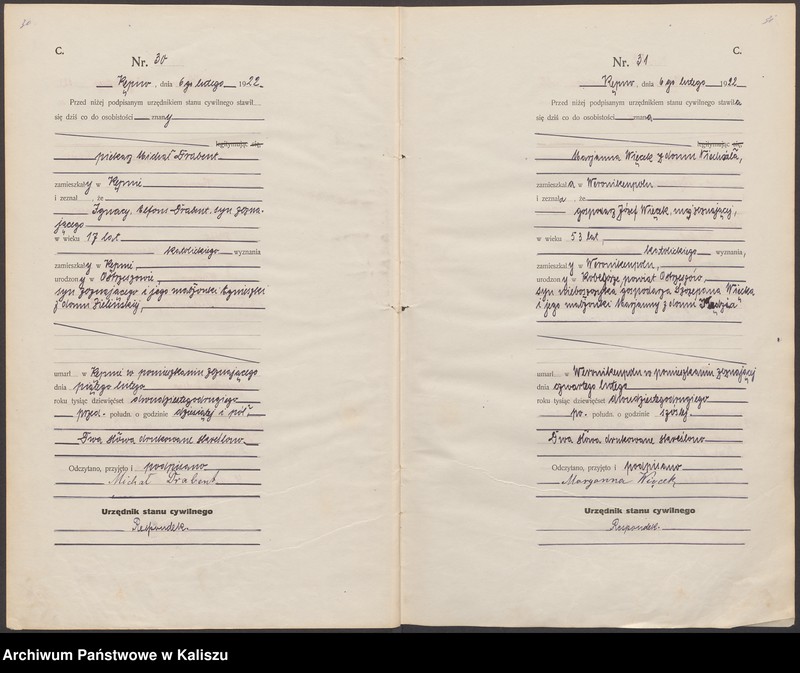 C.
Nr. 30
Kępno, dnia 6go lutego 1922.
Przed niżej podpisanym urzędnikiem stanu cywilnego stawił
się dziś co do osobistości znany
legitymując się,
piekarz Michał Drabent
zamieszkały w Kępnie
i zeznał, że
Ignacy Drabent syn zezna-
jącego
w wieku 17 lat
katolickiego wyznania
zamieszkały w Kępnie,
urodzony w Ostrzeszowie,
syn zeznającego i jego małżonki Agnieszki
z domu Zielińskiej,
umarł w Kępnie w pomieszkaniu zeznającego
dnia piątego lutego
roku tysiąc dziewięćset dwudziestegodrugiego
przed połudn. o godzinie dziewiątej i pół.
Dwa słowa drukowane skreślono
Odczytano, przyjęto i podpisano
Michał Drabent
Urzędnik stanu cywilnego
Respondek.
C.
Nr. 31
Kępno, dnia 6go lutego 1922
Przed niżej podpisanym urzędnikiem stanu cywilnego stawiła
się dziś co do osobistości znana,
legitymując się,
Marjanna Więcek z domu
zamieszkała w Weronikenpolu
i zeznała, że
gospodarz Józef Więcek, mąż zeznającej,
w wieku 53 lat,
katolickiego wyznania,
zamieszkały w Weronikenpolu,
urodzony w powiat Ostrzeszów,
syn nieboszczyka gospodarza Szczepana Więcka
i jego małżonki Marjanny z domu
umarł w Weronikenpolu w pomieszkaniu zeznającej
dnia czwartego lutego
roku tysiąc dziewięćset dwudziestegodrugiego
po połudn. o godzinie szóstej.
Dwa słowa drukowane skreślono
Odczytano, przyjęto i podpisano
Maryanna Więcek
Urzędnik stanu cywilnego
Respondek.
Archiwum Państwowe w Kaliszu